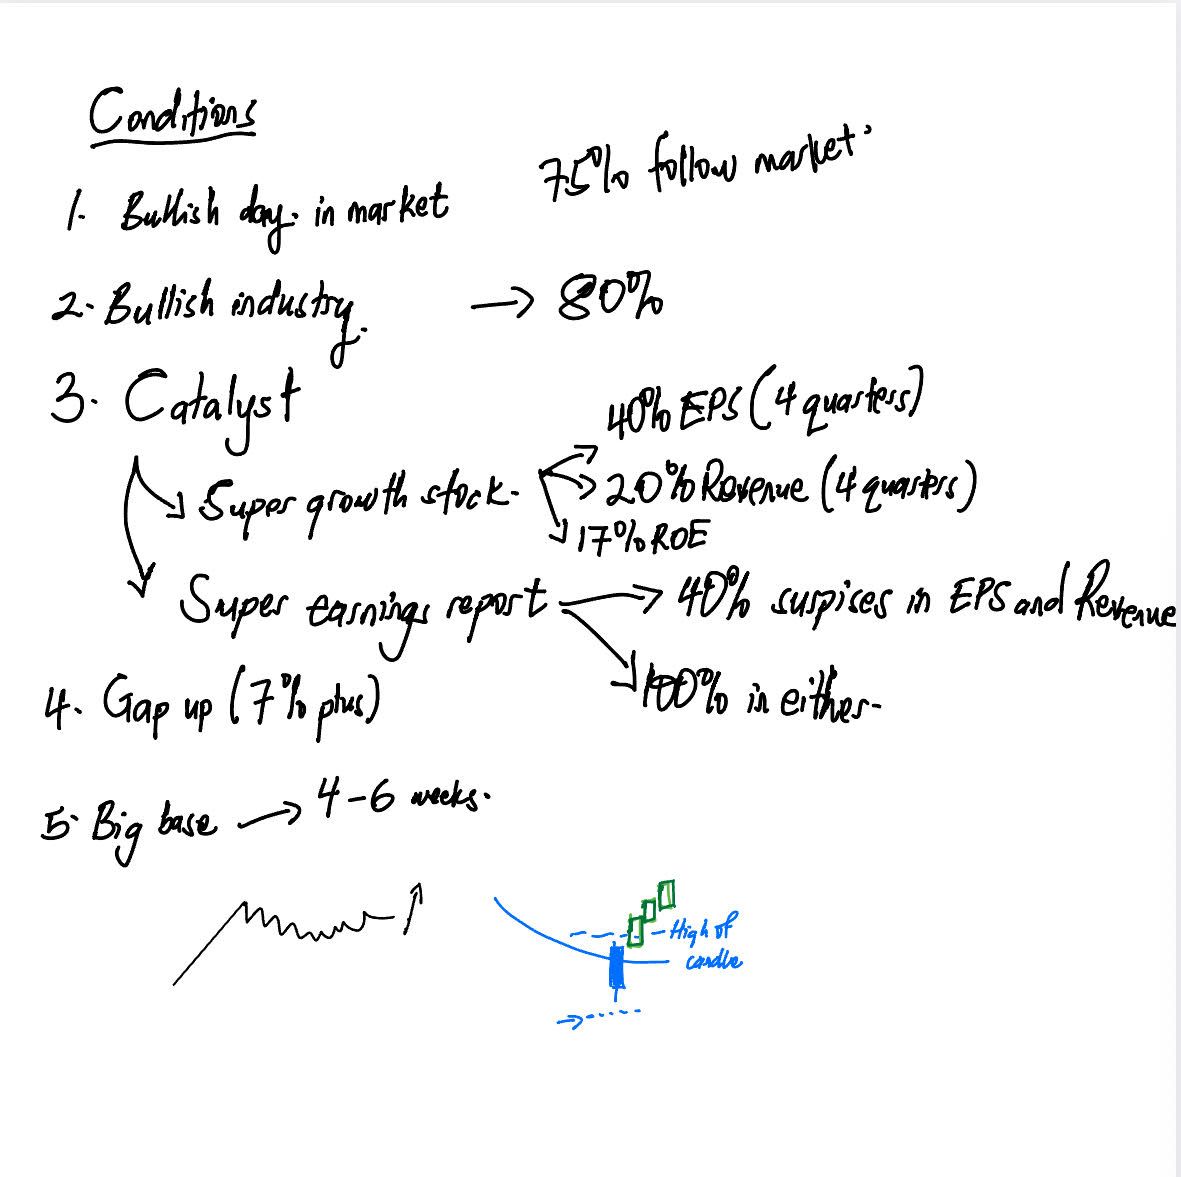 Conditions
75% follow market
1. Bullish day in market
2. Bullish industry. → 80%
3. Catalyst
40% EPS (4 quarters)
Super growth stock.
20% Revenue (4 quarters)
17% ROE
Super earnings report → 40% suspises in EPS and Revenue
100% in either.
4. Gap up (7% plus)
5. Big base → 4-6 weeks.
High of
candle